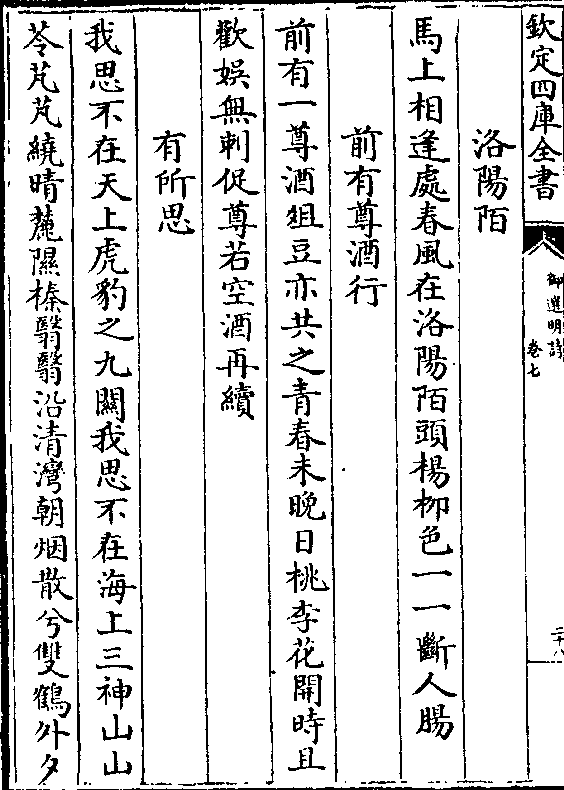 欽定四庫全書
御選明詩
卷七
二十八
洛陽陌
馬上相逢處春風在洛陽陌頭楊柳色一一斷人腸
前有尊酒行
前有一尊酒俎豆亦共之青春未晚日桃李花開時且
歡娛無刺促尊若空酒再續
有所思
我思不在天上虎豹之九關我思不在海上三神山山
苓芃芃繞晴麓隰榛翳翳沿清灣朝烟散兮雙鶴外夕